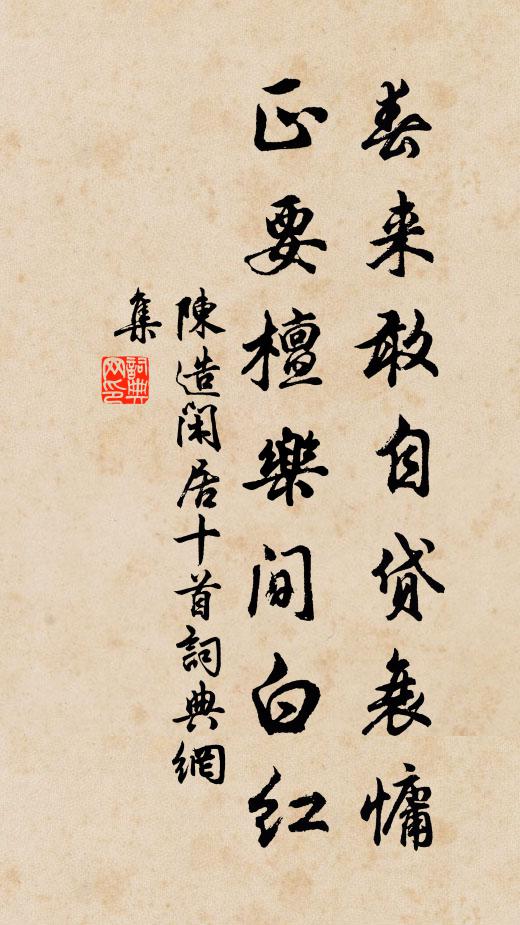 春来敢自贷衰慵
正要檀樂间白红
陳造閑居十首詞典網
集
詞典网印